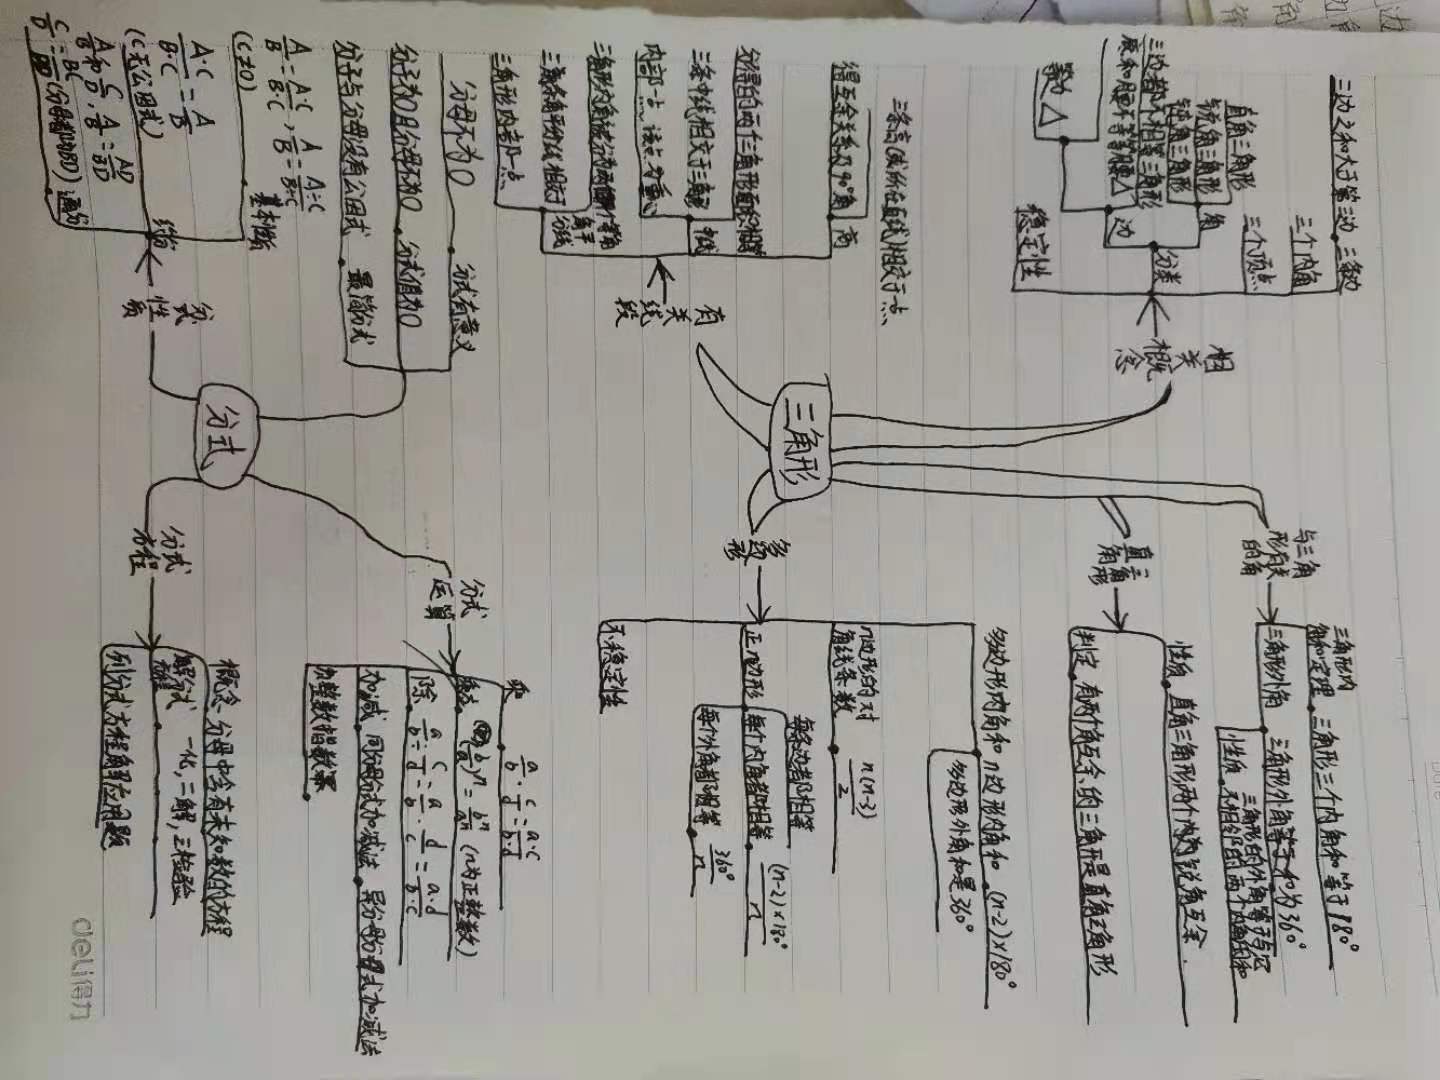 三角形
相关概念
三边之和大于第三边
三个内角
三个顶点
分类
角
直角三角形
锐角三角形
钝角三角形
边
三边都不相等三角形
等边△
稳定性
有关线段
三条高(或所在直线)相交于一点
高
得互余关系及90°角
中线
分得的两个三角形面积相等
三条中线相交于三角形
内部一点,该点为重心
角平分线
三条角平分线相交于
三角形内部一点
与三角形有关的角
三角形内角和定理
三角形三个内角和等于180°
三角形外角
三角形外角等于和为360°
性质
三角形的外角等于与它
不相邻的两个内角的和
直角三角形
性质
直角三角形两个内角为锐角互余.
判定
有两个角互余的三角形是直角三角形
多边形
多边形内角和
n边形内角和
(n-2)×180°
多边形外角和是360°
n边形的对角线条数
n(n-3)/2
正n边形
每条边都相等
每个内角都相等
(n-2)×180°/n
每个外角都相等
360°/n
不稳定性
分式
分母不为0
分式有意义
分子为0且分母不为0
分式值为0
分子与分母没有公因式
最简分式
分式性质
基本性质
A/B=A·C/B·C,A/B=A÷C/B÷C
(C≠0)
约分
A·C/B·C=A/B
(C无公因式)
通分
A/B和C/D,A/B=AD/BD
C/D=BC/BD(分母都为BD)
分式运算
乘
a/b·c/d=a·c/b·d
乘方
(b/a)ⁿ=bⁿ/aⁿ(n为正整数)
除
a/b÷c/d=a/b·d/c=a·d/b·c
加减
同分母分式加减法
异分母分式加减法
负整数指数幂
分式方程
概念
分母中含有未知数的方程
解分式方程
一化,二解,三检验
列分式方程解应用题
deli得力